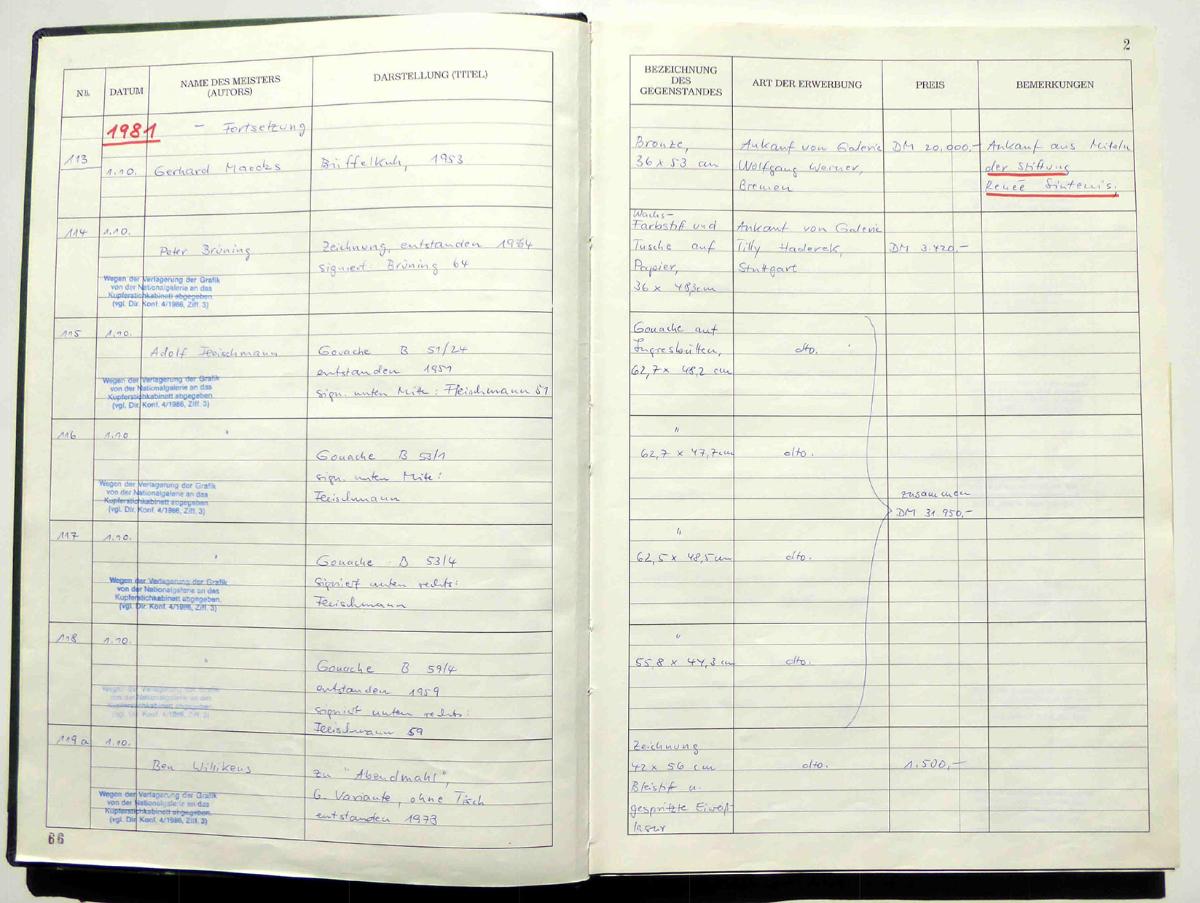 NR.
DATUM
NAME DES MEISTERS
(AUTORS)
DARSTELLUNG (TITEL)
1981 – Fortsetzung
113
1.10. Gerhard Marcks Büffelkuh, 1953
114 1.10.
Peter Brüning Zeichnung, entstanden 1964
signiert: Brüning 64
Wegen der Verlagerung der Grafik
von der Nationalgalerie an das
Kupferstichkabinett abgegeben.
(vgl. Dir. Konf. 4/1986, Ziff. 3)
115 1.10.
Adolf Fleischmann Gouache B 51/24
entstanden 1951
sign. unten Mitte: Fleischmann 51
Wegen der Verlagerung der Grafik
von der Nationalgalerie an das
Kupferstichkabinett abgegeben.
(vgl. Dir. Konf. 4/1986, Ziff. 3)
116 1.10 "
Gouache B 53/1
sign. unten Mitte:
Fleischmann
Wegen der Verlagerung der Grafik
von der Nationalgalerie an das
Kupferstichkabinett abgegeben
(vgl. Dir. Konf. 4/1986, Ziff. 3)
117 1.10. "
Gouache B 53/4
signiert unten rechts:
Fleischmann
Wegen der Verlagerung der Grafik
von der Nationalgalerie an das
Kupferstichkabinett abgegeben.
(vgl. Dir. Konf. 4/1986, Ziff. 3)
118 1.10. "
Gouache B 59/4
entstanden 1959
signiert unten rechts:
Fleischmann 59
Wegen der Verlagerung der Grafik
von der Nationalgalerie an das
Kupferstichkabinett abgegeben.
(vgl. Dir. Konf. 4/1986, Ziff. 3)
119a 1.10.
Ben Willikens zu "Abendmahl",
6. Variante, ohne Tisch
entstanden 1973
Wegen der Verlagerung der Grafik
von der Nationalgalerie an das
Kupferstichkabinett abgegeben.
(vgl. Dir. Konf. 4/1986, Ziff. 3)
66
2
BEZEICHNUNG
DES
GEGENSTANDES
ART DER ERWERBUNG
PREIS
BEMERKUNGEN
Bronze, Ankauf von Galerie DM 20.000,- Ankauf aus Miteln
36 x 53 cm Wolfgang Werner, der Stiftung
Bremen Renée Sintenis,
Wachs-
Farbstift und Ankauf von Galerie
Tusche auf Tilly Haderek, DM 3.420,-
Papier, Stuttgart
36 x 48,3cm
Gouache auf
Ingresbütten, dto.
62,7 x 48,2 cm
"
62,7 x 47,7cm dto.
zusammen
DM 31 950,-
"
62,5 x 48,5cm dto.
"
55,8 x 47,3 cm dto.
Zeichnung
42 x 56 cm dto. 1.500,-
Bleistift u.
gespritzte Eiweiß
lasur